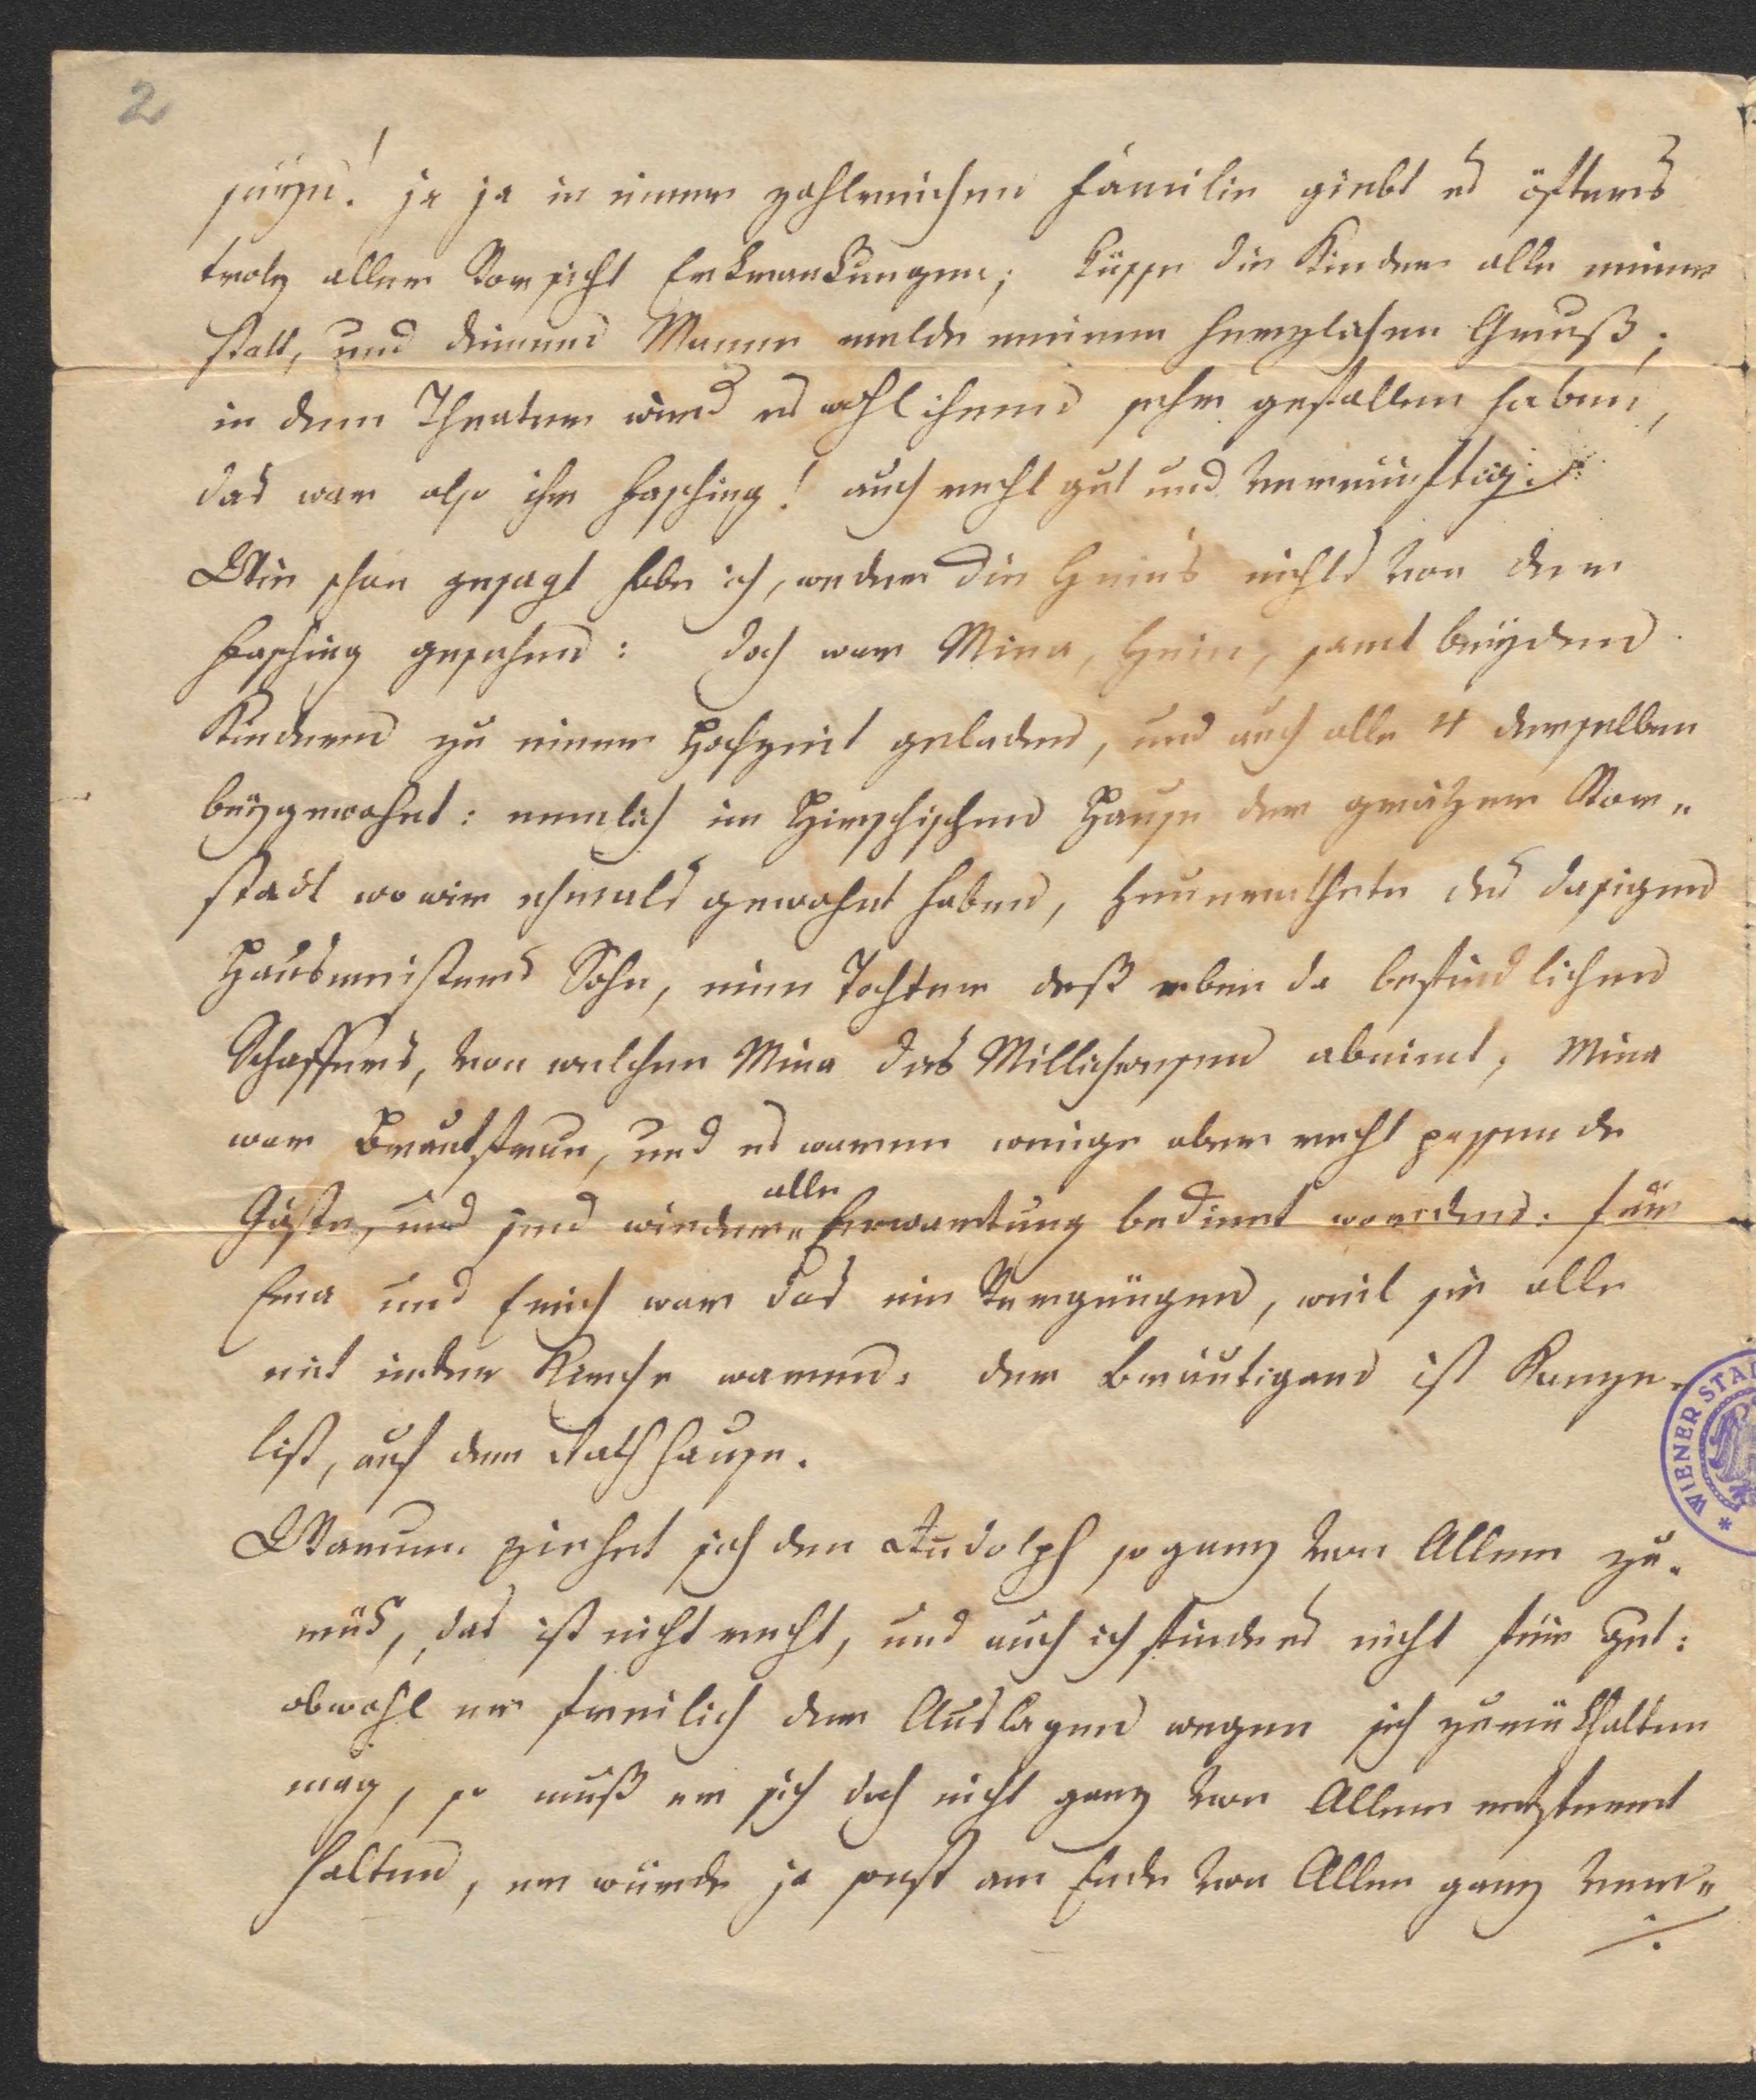 2
seyn! ja ja in einer zahlreichen Familie giebt es öfters
trotz aller Vorsicht Erkrankungen; küsse die Kinder alle meiner
statt, und deinem Manne melde meinen herzlichen Gruß;
in dem Theater wird es wohl ihnen sehr gefallen haben,
das war also ihr Fasching! auch recht gut und vernünftig.
Wie schon gesagt habe ich, weder die Heins nichts von dem
Fasching gesehen: doch war Mina, Hein, samt beyden
Kindern zu einer Hochzeit geladen, und auch alle 4 derselben
beygewohnt: nemlich im Hirschischen Hause der grätzer Vor-
stadt wo wir ehmals gewohnt haben, heurathete des dasigen
Hausmeisters Sohn, eine Tochter deß eben da befindlichen
Schaffers, von welchen Mina das Millichwesen abnimt, Mina
war Brautfrau, und es waren wenige aber recht passende
Gäste, und sind wieder alle Erwartung bedient worden: für
Ema und Erich war das ein Vergnügen, weil sie alle
mit in der Kirche waren. der Bräutigam ist Kanze-
list, auf dem Rathhause.
Warum ziehet sich den Rudolph so ganz von Allem zu-
rük, das ist nicht recht, und auch ich finde es nicht für gut:
obwohl er freilich der Auslagen wegen sich zurükhalten
mag, so muß er sich doch nicht ganz von Allem entfernt
halten, er würde ja sonst am Ende von Allen ganz ver-
./.
WIENER STA